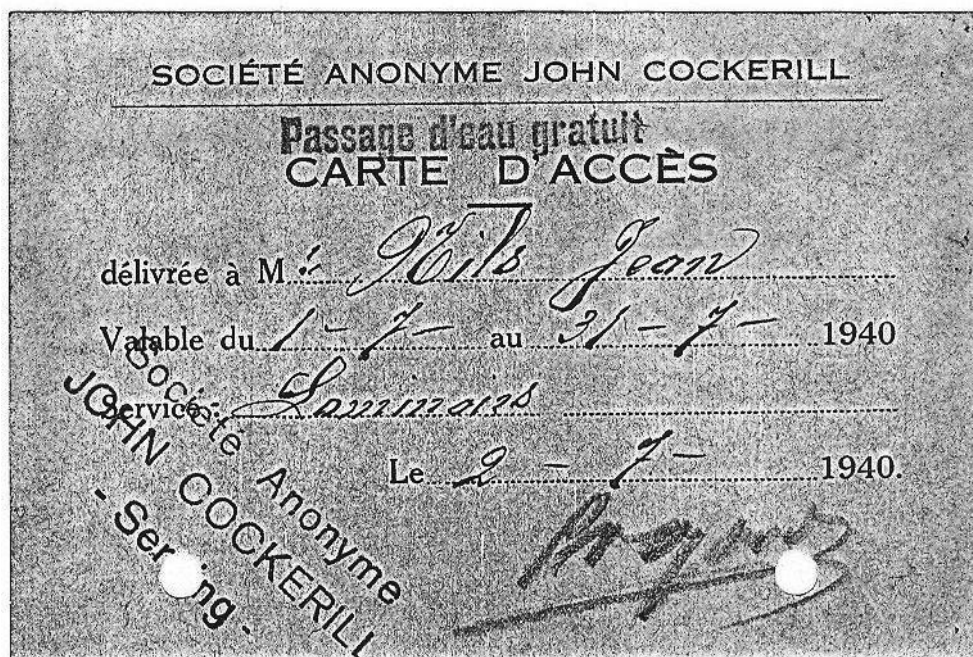 SOCIÉTÉ ANONYME JOHN COCKERILL
Passage d'eau gratuit
CARTE D'ACCÈS
délivrée à M. Jean
Valable du 1-7- au 31-7- 1940
Service:
Le 2-7- 1940.
Société Anonyme
JOHN COCKERILL
- Seraing -